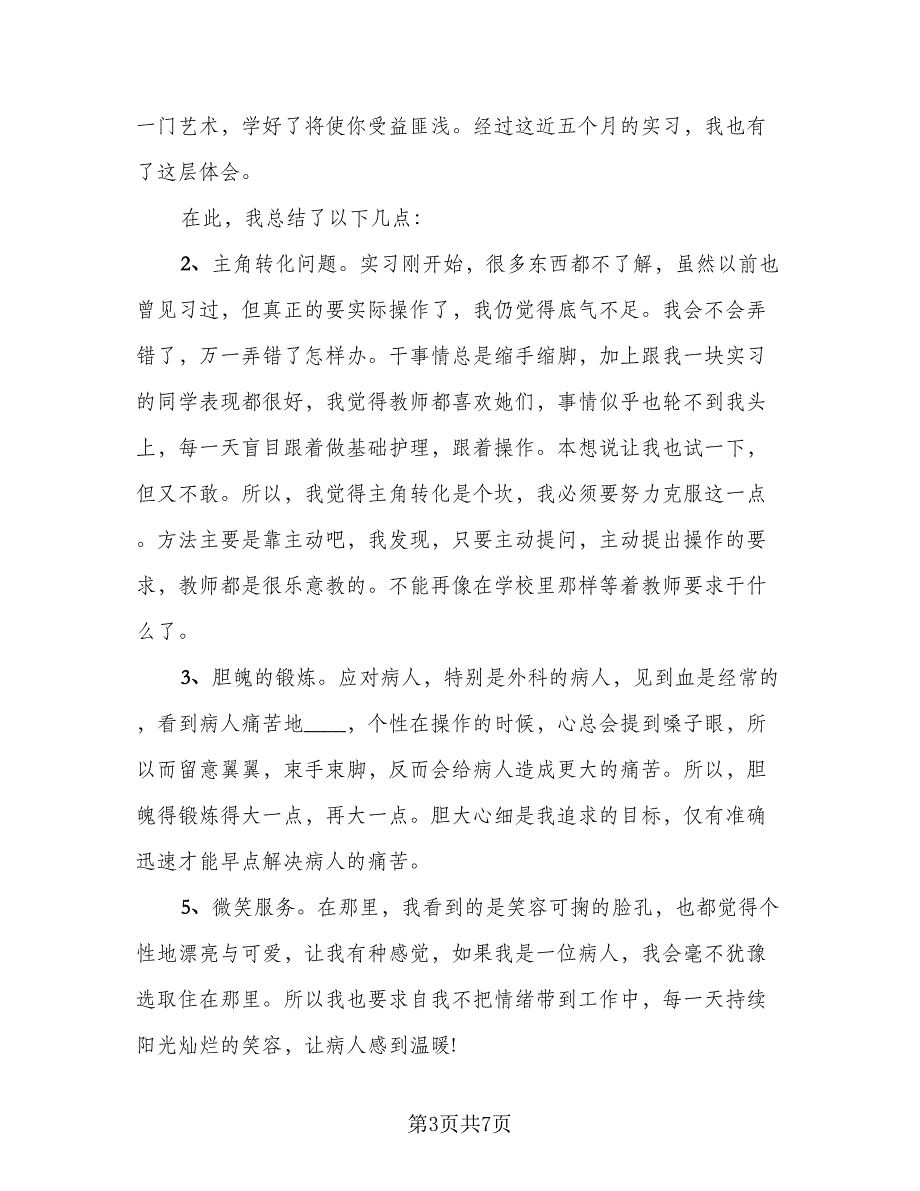 一门艺术，学好了将使你受益匪浅。经过这近五个月的实习，我也有
了这层体会。
在此，我总结了以下几点：
2、主角转化问题。实习刚开始，很多东西都不了解，虽然以前也
曾见习过，但真正的要实际操作了，我仍觉得底气不足。我会不会弄
错了，万一弄错了怎样办。干事情总是缩手缩脚，加上跟我一块实习
的同学表现都很好，我觉得教师都喜欢她们，事情似乎也轮不到我头
上，每一天盲目跟着做基础护理，跟着操作。本想说让我也试一下，
但又不敢。所以，我觉得主角转化是个坎，我必须要努力克服这一点
。方法主要是靠主动吧，我发现，只要主动提问，主动提出操作的要
求，教师都是很乐意教的。不能再像在学校里那样等着教师要求干什
么了。
3、胆魄的锻炼。应对病人，特别是外科的病人，见到血是经常的
，看到病人痛苦地____，个性在操作的时候，心总会提到嗓子眼，所
以而留意翼翼，束手束脚，反而会给病人造成更大的痛苦。所以，胆
魄得锻炼得大一点，再大一点。胆大心细是我追求的目标，仅有准确
迅速才能早点解决病人的痛苦。
5、微笑服务。在那里，我看到的是笑容可掬的脸孔，也都觉得个
性地漂亮与可爱，让我有种感觉，如果我是一位病人，我会毫不犹豫
选取住在那里。所以我也要求自我不把情绪带到工作中，每一天持续
阳光灿烂的笑容，让病人感到温暖!
第3页共7页